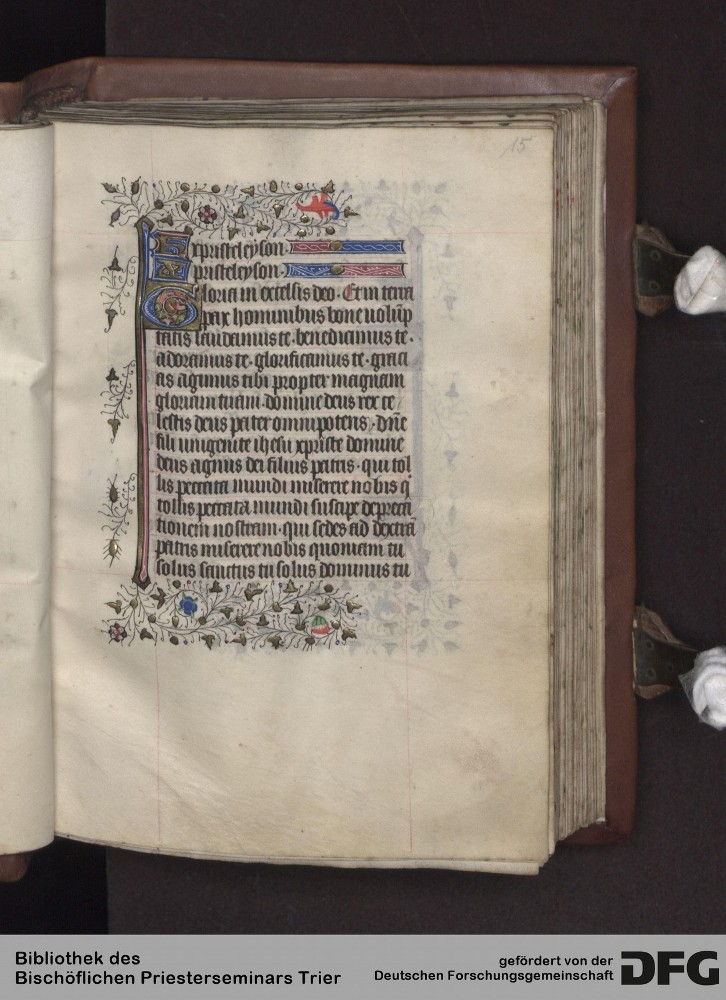 15
xpristeleyson.
xpristeleyson.
Gloria in excelsis deo. Et in terra
pax hominibus bone uolūp
tatis laudamus te. benedicimus te.
adoramus te. glorificamus te. graci
as agimus tibi propter magnam
gloriam tuam. domine deus rex ce
lestis deus pater omnipotens. dn̄e
fili unigenite ihesu xpriste domine
deus agnus dei filius patris. qui tol
lis peccata mundi miserere nobis q̄
tollis peccata mundi suscipe depreca
tionem nostram. qui sedes ad dextrā
patris miserere nobis quoniam tu
solus sanctus tu solus dominus tu
Bibliothek des
Bischöflichen Priesterseminars Trier
gefördert von der
Deutschen Forschungsgemeinschaft
DFG